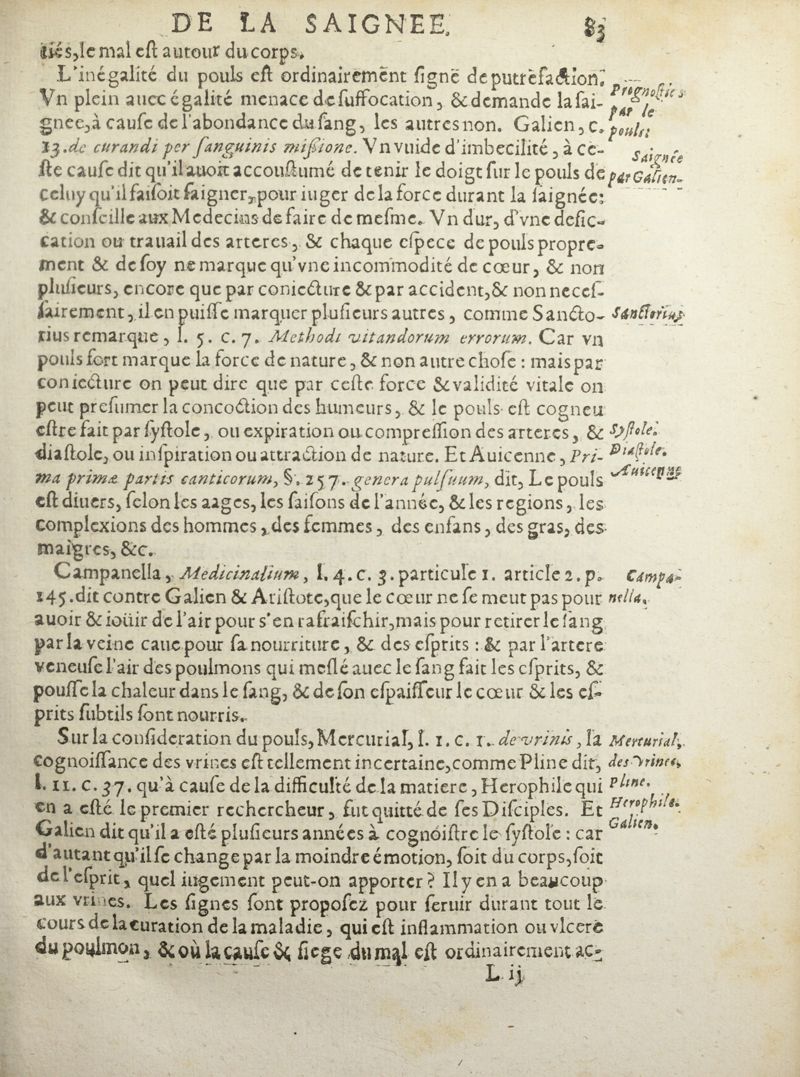 DE LA SAIGNEE. 83
tiés, le mal eſt autour du corps.
L'inégalité du pouls eſt ordinairement ſigne de putrefaction.
Vn plein auec égalité menace de ſuffocation, & demande la ſai-
Prognoſtics par le pouls.
gnee, à cauſe de l'abondance du ſang, les autres non. Galien, c.
13. de curandi per ſanguinis miſsione. Vn vuide d'imbecilité, à ce-
Saignée par Galien.
ſte cauſe dit qu'il auoit accouſtumé de tenir le doigt ſur le pouls de
celuy qu'il faiſoit ſaigner, pour iuger de la force durant la ſaignée:
& conſeille aux Medecins de faire de meſme. Vn dur, d'vne deſic-
cation ou trauail des arteres, & chaque eſpece de pouls propre-
ment & de ſoy ne marque qu'vne incommodité de cœur, & non
pluſieurs, encore que par coniecture & par accident, & non neceſ-
ſairement, il en puiſſe marquer pluſieurs autres, comme Sancto-
Sanctorius
rius remarque, l. 5. c. 7. Methodi vitandorum errorum. Car vn
pouls fort marque la force de nature, & non autre choſe : mais par
coniecture on peut dire que par ceſte force & validité vitale on
peut preſumer la concoction des humeurs, & le pouls eſt cogneu
eſtre fait par ſyſtole, ou expiration ou compreſſion des arteres, &
Syſtole.
diaſtole, ou inſpiration ou attraction de nature. Et Auicenne, Pri-
Diaſtole.
ma primæ partis canticorum, §. 257. genera pulſuum, dit, Le pouls
Auicenne
eſt diuers, ſelon les aages, les ſaiſons de l'année, & les regions, les
complexions des hommes, des femmes, des enfans, des gras, des
maigres, &c.
Campanella, Medicinalium, l. 4. c. 3. particule 1. article 2. p.
Campa-
145. dit contre Galien & Ariſtote, que le cœur ne ſe meut pas pour
nella,
auoir & ioüir de l'air pour s'en rafraiſchir, mais pour retirer le ſang
par la veine caue pour ſa nourriture, & des eſprits : & par l'artere
veneuſe l'air des poulmons qui meſlé auec le ſang fait les eſprits, &
pouſſe la chaleur dans le ſang, & de ſon eſpaiſſeur le cœur & les eſ-
prits ſubtils ſont nourris.
Sur la conſideration du pouls, Mercurial, l. 1. c. 1. de vrinis, la
Mercurial,
cognoiſſance des vrines eſt tellement incertaine, comme Pline dit,
des Vrines,
l. 11. c. 37. qu'à cauſe de la difficulté de la matiere, Herophile qui
Pline.
en a eſté le premier rechercheur, fut quitté de ſes Diſciples. Et
Herophile.
Galien dit qu'il a eſté pluſieurs années à cognoiſtre le ſyſtole : car
Galien.
d'autant qu'il ſe change par la moindre émotion, ſoit du corps, ſoit
de l'eſprit, quel iugement peut-on apporter ? Il y en a beaucoup
aux vrines. Les ſignes ſont propoſez pour ſeruir durant tout le
cours de la curation de la maladie, qui eſt inflammation ou vlcere
du poulmon, & où la cauſe & ſiege du mal eſt ordinairement ac-
L ij